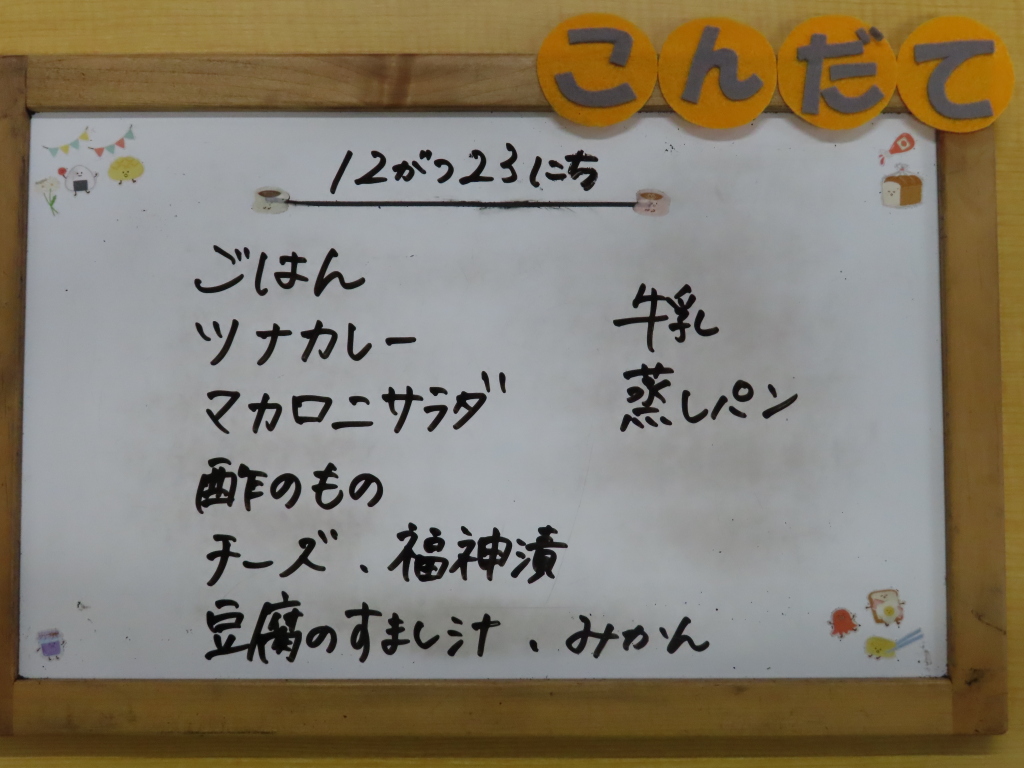 こんだて
12がつ23にち
ごはん
ツナカレー
マカロニサラダ
酢のもの
チーズ、福神漬
豆腐のすまし汁、みかん
牛乳
蒸しパン